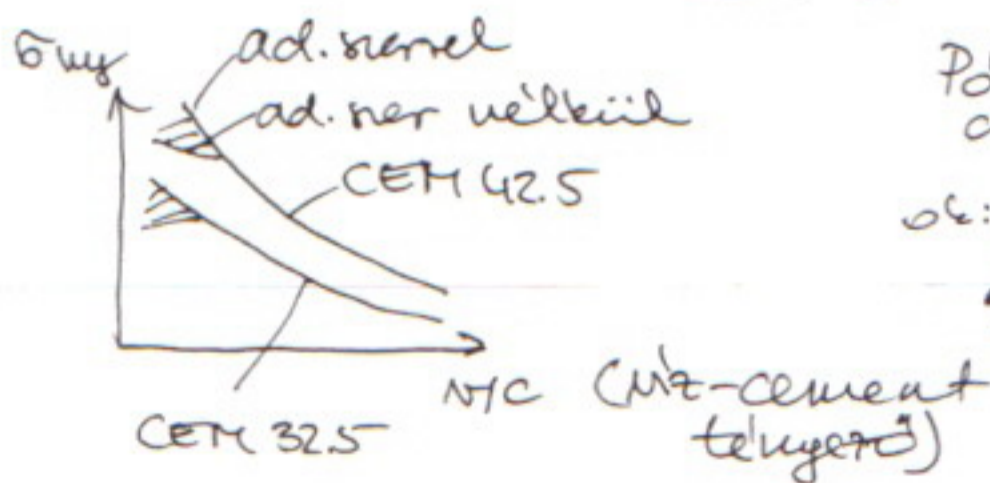 σny
ad.szerrel
ad.szer nélkül
CEM 42.5
CEM 32.5
v/c (víz-cement
tényező)
ok: